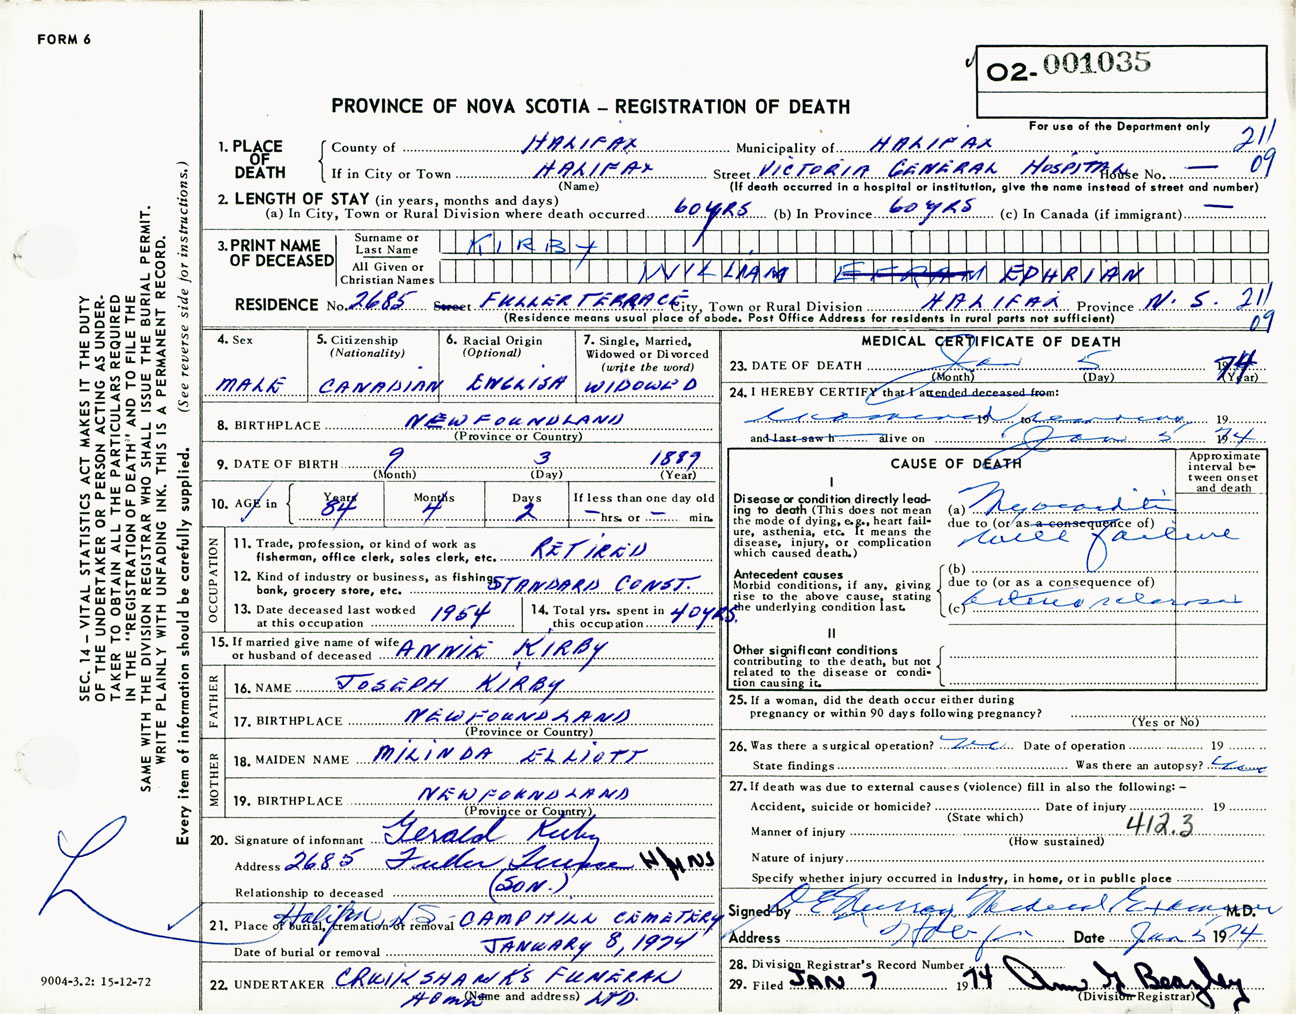 FORM 6
O2-001035
PROVINCE OF NOVA SCOTIA – REGISTRATION OF DEATH
For use of the Department only
SEC. 14 – VITAL STATISTICS ACT MAKES IT THE DUTY
OF THE UNDERTAKER OR PERSON ACTING AS UNDER.
TAKER TO OBTAIN ALL THE PARTICULARS REQUIRED
IN THE "REGISTRATION OF DEATH" AND TO FILE THE
SAME WITH THE DIVISION REGISTRAR WHO SHALL ISSUE THE BURIAL PERMIT.
WRITE PLAINLY WITH UNFADING INK. THIS IS A PERMANENT RECORD.
Every item of information should be carefully supplied. (See reverse side for instructions.)
1. PLACE OF DEATH
County of HALIFAX Municipality of HALIFAX 211
If in City or Town HALIFAX Street VICTORIA GENERAL HOSPITAL House No. — 09
(Name) (If death occurred in a hospital or institution, give the name instead of street and number)
2. LENGTH OF STAY (in years, months and days)
(a) In City, Town or Rural Division where death occurred 60 YRS (b) In Province 60 YRS (c) In Canada (if immigrant) —
3. PRINT NAME OF DECEASED
Surname or Last Name KIRBY
All Given or Christian Names WILLIAM EFRAM EPHRIAN
RESIDENCE No. 2685 Street FULLER TERRACE City, Town or Rural Division HALIFAX Province N. S. 211
(Residence means usual place of abode. Post Office Address for residents in rural parts not sufficient) 09
4. Sex MALE
5. Citizenship (Nationality) CANADIAN
6. Racial Origin (Optional) ENGLISH
7. Single, Married, Widowed or Divorced (write the word) WIDOWED
8. BIRTHPLACE NEWFOUNDLAND
(Province or Country)
9. DATE OF BIRTH 9 3 1889
(Month) (Day) (Year)
10. AGE in Years 84 Months 4 Days 2 If less than one day old – hrs. or – min.
OCCUPATION
11. Trade, profession, or kind of work as fisherman, office clerk, sales clerk, etc. RETIRED
12. Kind of industry or business, as fishing, bank, grocery store, etc. STANDARD CONST.
13. Date deceased last worked at this occupation 1954
14. Total yrs. spent in this occupation 40 YRS.
15. If married give name of wife or husband of deceased ANNIE KIRBY
FATHER
16. NAME JOSEPH KIRBY
17. BIRTHPLACE NEWFOUNDLAND
(Province or Country)
MOTHER
18. MAIDEN NAME MILINDA ELLIOTT
19. BIRTHPLACE NEWFOUNDLAND
(Province or Country)
20. Signature of informant Gerald Kirby
Address 2685 Fuller Terrace
Relationship to deceased (SON.)
21. Place of burial, cremation or removal Halifax NS - CAMPHILL CEMETERY
Date of burial or removal JANUARY 8, 1974
22. UNDERTAKER CRUIKSHANK'S FUNERAL
HOME LTD.
(Name and address)
9004-3.2: 15-12-72
MEDICAL CERTIFICATE OF DEATH
23. DATE OF DEATH Jan 5 1974
(Month) (Day) (Year)
24. I HEREBY CERTIFY that I attended deceased from:
19 to 19
and last saw h alive on Jan 5 1974
CAUSE OF DEATH
Approximate interval between onset and death
I
Disease or condition directly leading to death (This does not mean the mode of dying, e.g., heart failure, asthenia, etc. It means the disease, injury, or complication which caused death.)
(a) Myocarditis
due to (or as a consequence of)
with failure
Antecedent causes
Morbid conditions, if any, giving rise to the above cause, stating the underlying condition last.
(b)
due to (or as a consequence of)
(c) arteriosclerosis
II
Other significant conditions
contributing to the death, but not related to the disease or condition causing it.
25. If a woman, did the death occur either during pregnancy or within 90 days following pregnancy?
(Yes or No)
26. Was there a surgical operation? no Date of operation 19
State findings Was there an autopsy?
27. If death was due to external causes (violence) fill in also the following: –
Accident, suicide or homicide? Date of injury 19
(State which)
Manner of injury 412.3
(How sustained)
Nature of injury
Specify whether injury occurred in industry, in home, or in public place
Signed by Murray Medical Examiner M.D.
Address Halifax Date Jan 5 1974
28. Division Registrar's Record Number
29. Filed JAN 7 1974 Ann G Beazley
(Division Registrar)